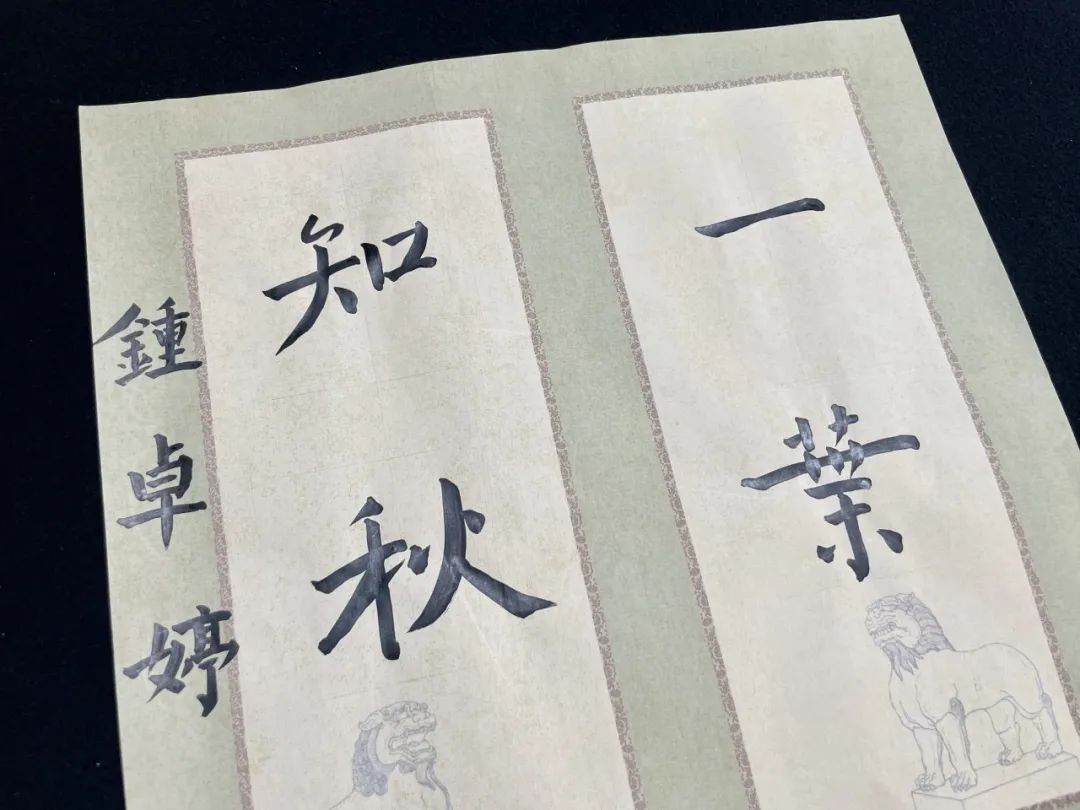 一葉
知秋
鍾卓婷